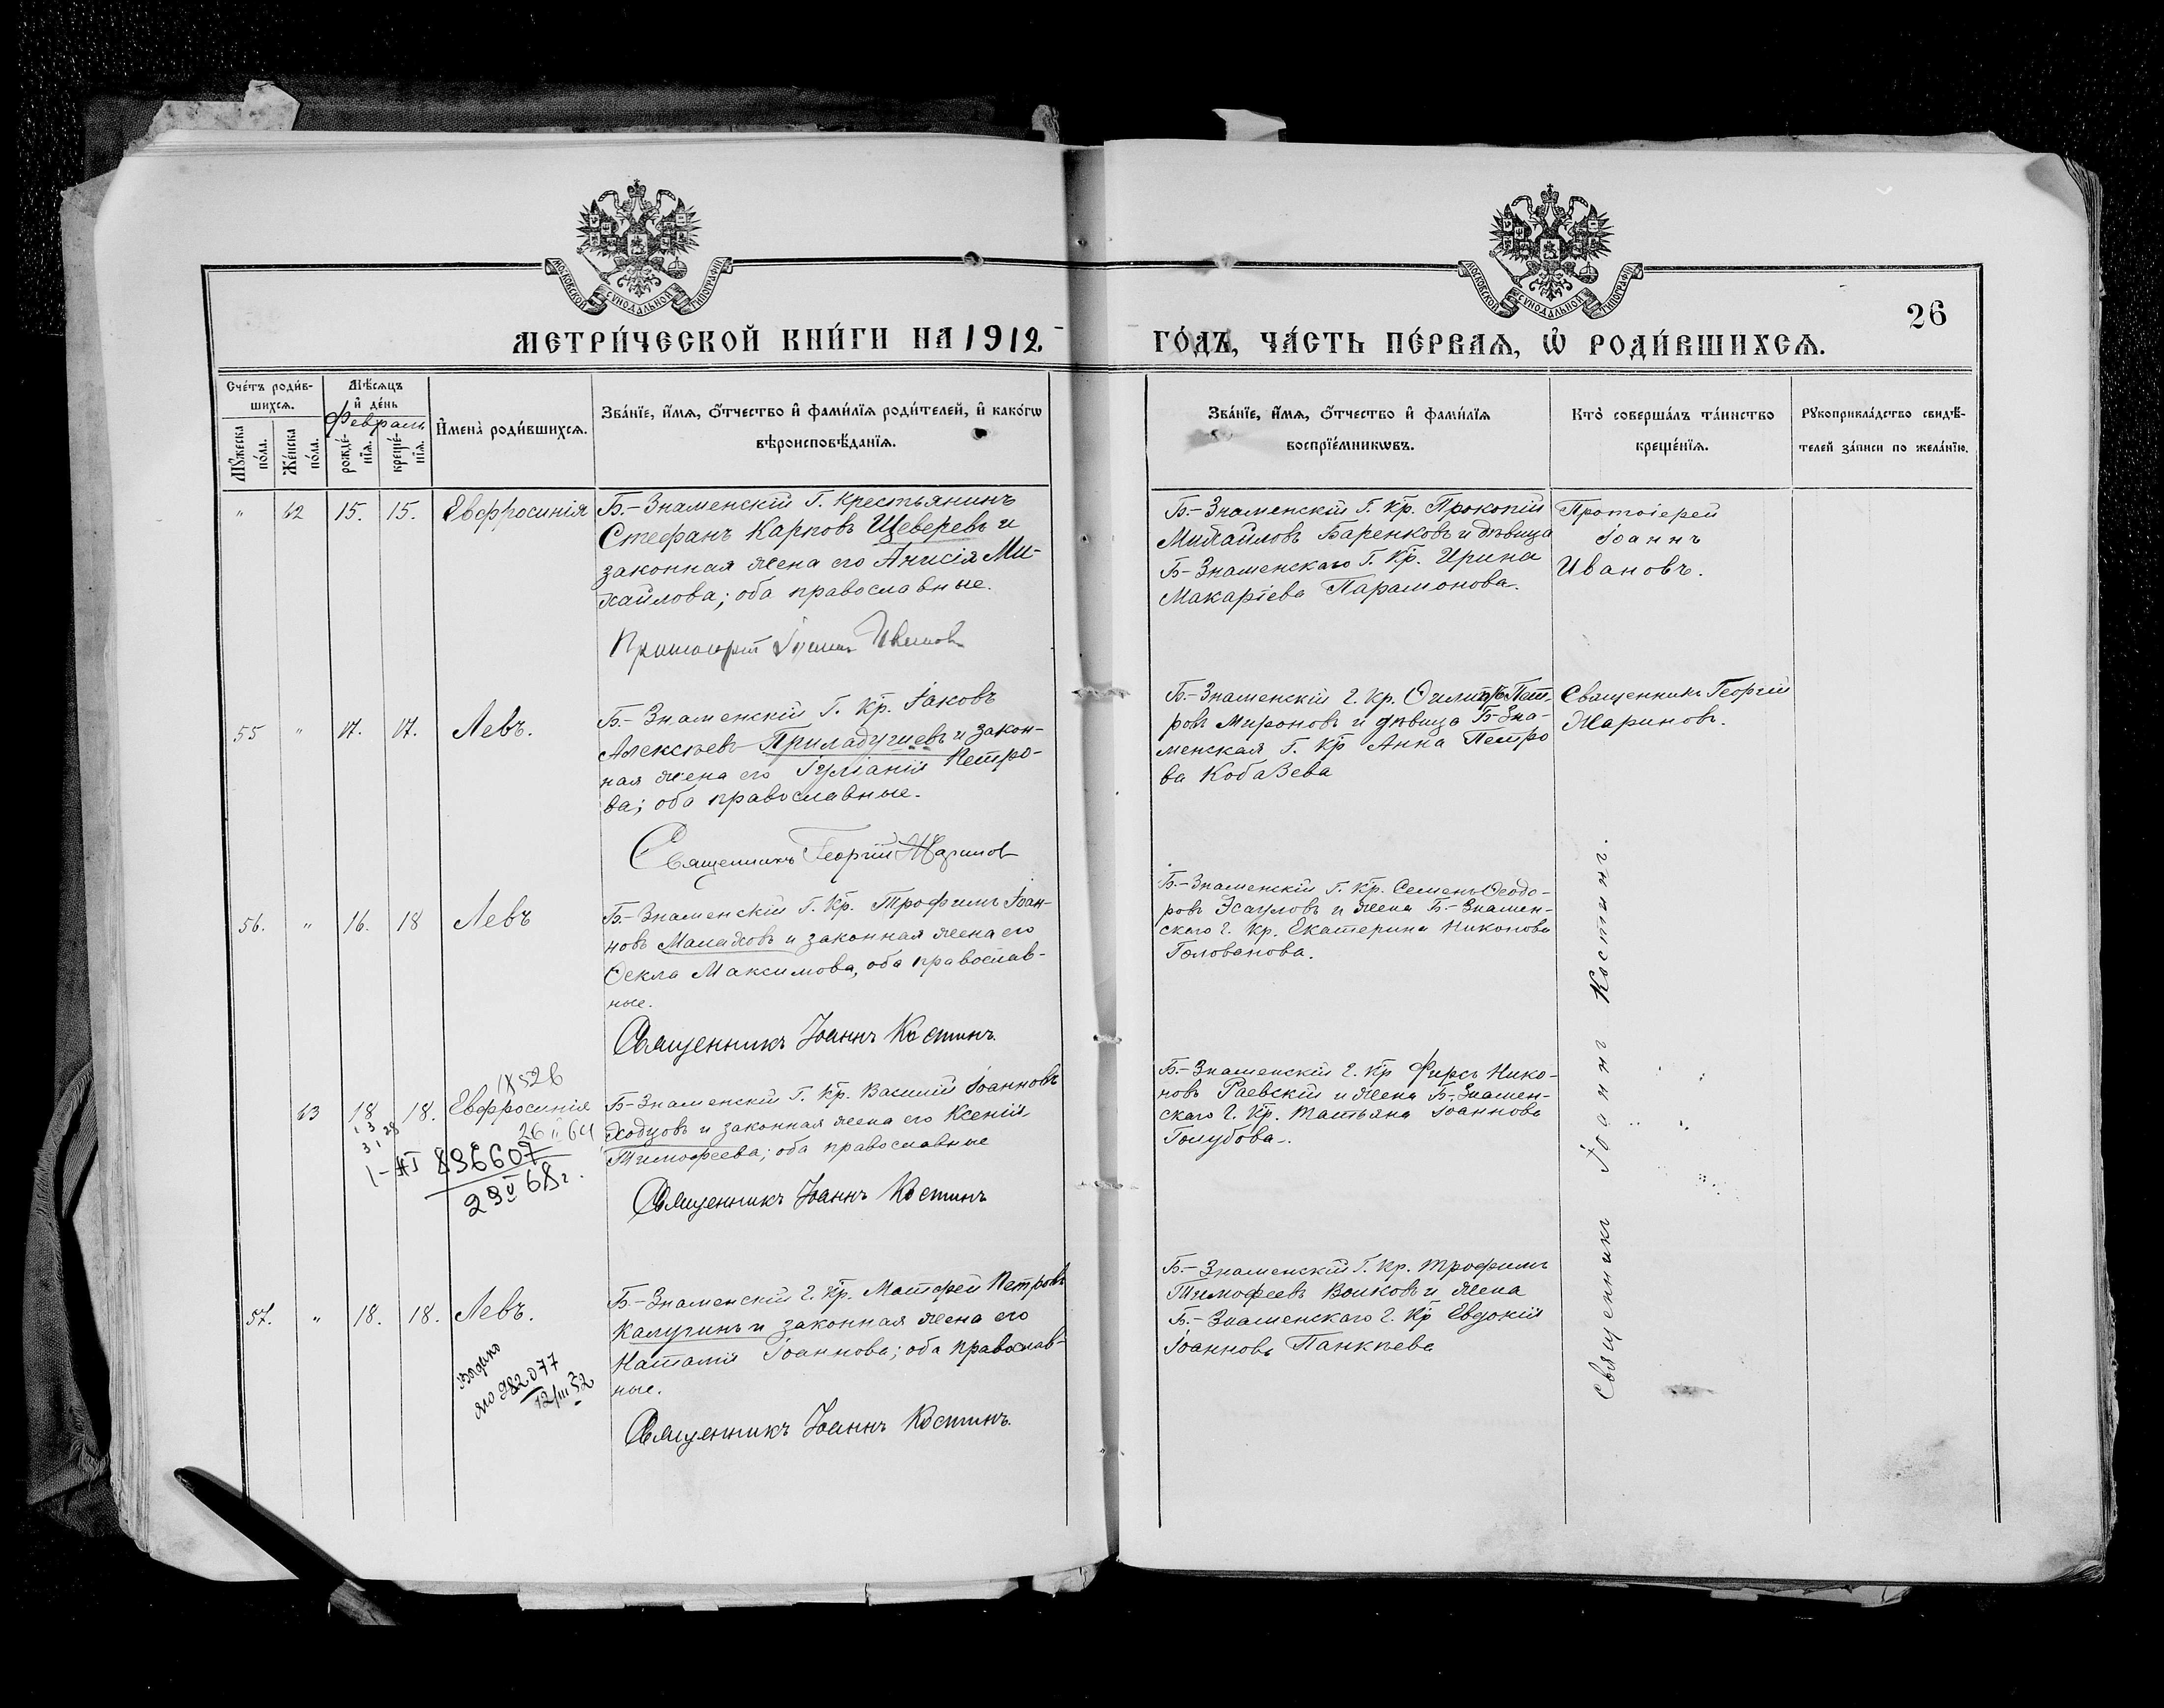 МОСКОВСКОЙ СУНОДАЛЬНОЙ ТИПОГРАФІИ
МОСКОВСКОЙ СУНОДАЛЬНОЙ ТИПОГРАФІИ
26
МЕТРИ́ЧЕСКОЙ КНИ́ГИ НА 1912
ГО́ДЪ, ЧА́СТЬ ПЕ́РВАѦ, Ѡ҆ РОДИ́ВШИХСѦ.
Сче́тъ роди́в-
шихсѧ.
Мѣ́сѧцъ
и҆ де́нь
Февраль
Мꙋ́жеска
по́ла.
Же́нска
по́ла.
рожде́-
нїѧ.
креще́-
нїѧ.
И҆мена̀ роди́вшихсѧ.
Зва́нїе, и҆́мѧ, ѻ҆́тчество и҆ фами́лїѧ роди́телей, и҆ како́гѡ
вѣроисповѣ́данїѧ.
Зва́нїе, и҆́мѧ, ѻ҆́тчество и҆ фами́лїѧ
воспрїе́мникѡвъ.
Кто̀ соверша́лъ та́инство
креще́нїѧ.
Рꙋкоприкла́дство свидѣ́-
телей за́писи по жела́нїю.
" 62 15. 15. Евфросинія
Б.-Знаменскій Г. Крестьянинъ
Стефанъ Карповъ Щеверевъ и
законная жена его Анисія Ми-
хайлова; оба православные.
Протоіерей Іоаннъ Ивановъ
Б.-Знаменскій Г. Кр. Прокопій
Михайловъ Баренковъ и дѣвица
Б-Знаменскаго Г. Кр. Ирина
Макаріева Парамонова.
Протоіерей
Іоаннъ
Ивановъ.
55 " 17. 17. Левъ.
Б.-Знаменскій Г. Кр. Іаковъ
Алексѣевъ Приладушевъ и закон-
ная жена его Іуліанія Петро-
ва; оба православные.
Священникъ Георгій Жариновъ
Б.-Знаменскій Г. Кр. Ѳилиппъ Пет-
ровъ Мироновъ и дѣвица Б-Зна-
менская Г. Кр Анна Петро
ва Кобазева
Священникъ Георгій
Жариновъ.
56. " 16. 18 Левъ
Б.-Знаменскій Г. Кр. Трофимъ Іоан-
новъ Малаховъ и законная жена его
Ѳекла Максимова, оба православ-
ные.
Священникъ Іоаннъ Костинъ.
Б.-Знаменскій Г. Кр. Семенъ Ѳеодо-
ровъ Эсауловъ и жена Б.-Знамен-
скаго Г. Кр. Екатерина Никонова
Голованова.
63 18 18. Евфросинія
26 II 64
836607
29 V 68 г.
Б-Знаменскій Г. Кр. Василій Іоанновъ
Ходцовъ и законная жена его Ксенія
Тимофеева; оба православные
Священникъ Іоаннъ Костинъ
Б.-Знаменскій Г. Кр Фирсъ Нико-
новъ Раевскій и жена Б.-Знамен-
скаго Г. Кр. Татьяна Іоаннова
Голубова.
57. " 18. 18. Левъ.
982077
12/III 52
Б.-Знаменскій Г. Кр. Матфей Петровъ
Калугинъ и законная жена его
Наталія Іоаннова; оба православ-
ные.
Священникъ Іоаннъ Костинъ.
Б.-Знаменскій Г. Кр. Трофимъ
Тимофеевъ Волковъ и жена
Б.-Знаменскаго Г. Кр Евдокія
Іоаннова Панкѣева
Священникъ Іоаннъ Костинъ.